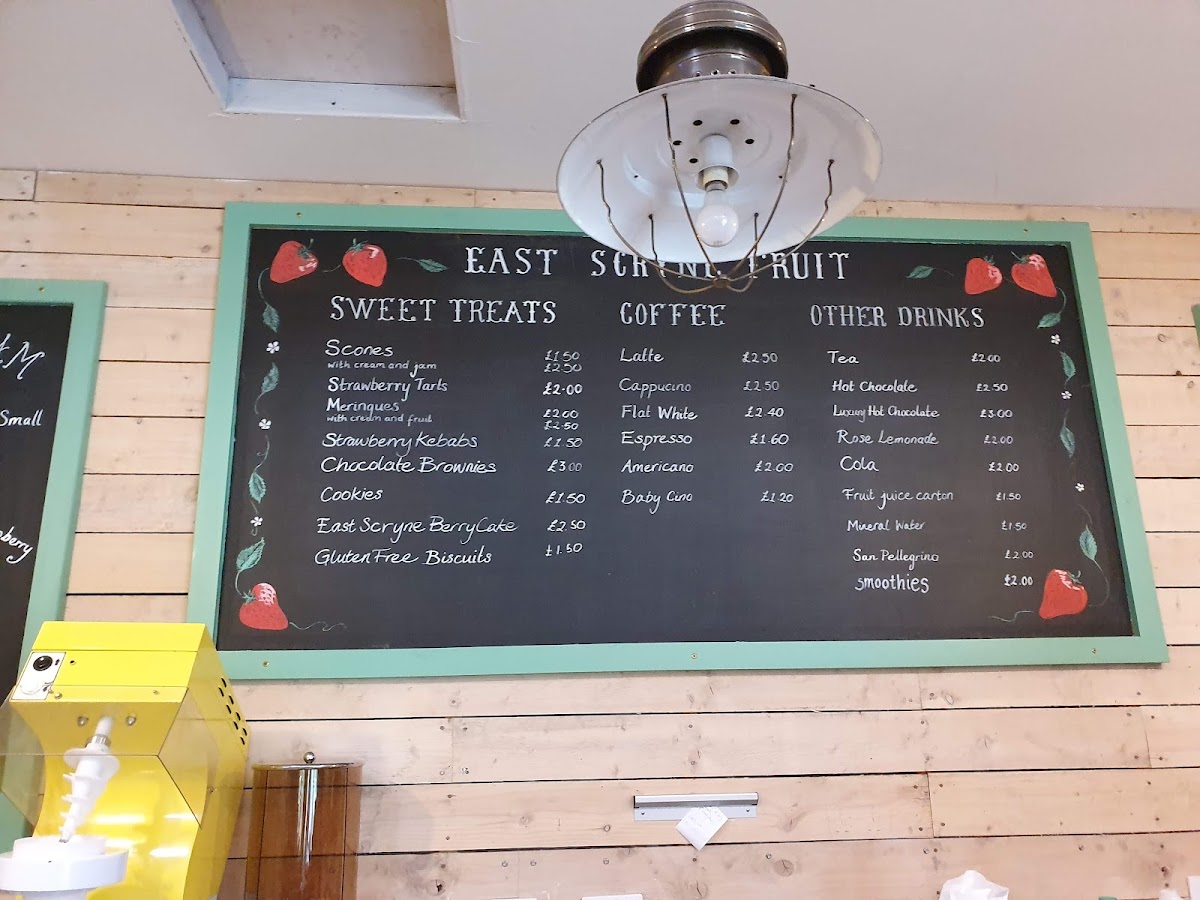 EAST SCRYNE FRUIT
SWEET TREATS
Scones £1.50
with cream and jam £2.50
Strawberry Tarts £2.00
Meringues £2.00
with cream and fruit £2.50
Strawberry Kebabs £1.50
Chocolate Brownies £3.00
Cookies £1.50
East Scryne Berry Cake £2.50
Gluten Free Biscuits £1.50
COFFEE
Latte £2.50
Cappucino £2.50
Flat White £2.40
Espresso £1.60
Americano £2.00
Baby Cino £1.20
OTHER DRINKS
Tea £2.00
Hot Chocolate £2.50
Luxury Hot Chocolate £3.00
Rose Lemonade £2.00
Cola £2.00
Fruit juice carton £1.50
Mineral Water £1.50
San Pellegrino £2.00
smoothies £2.00
Small